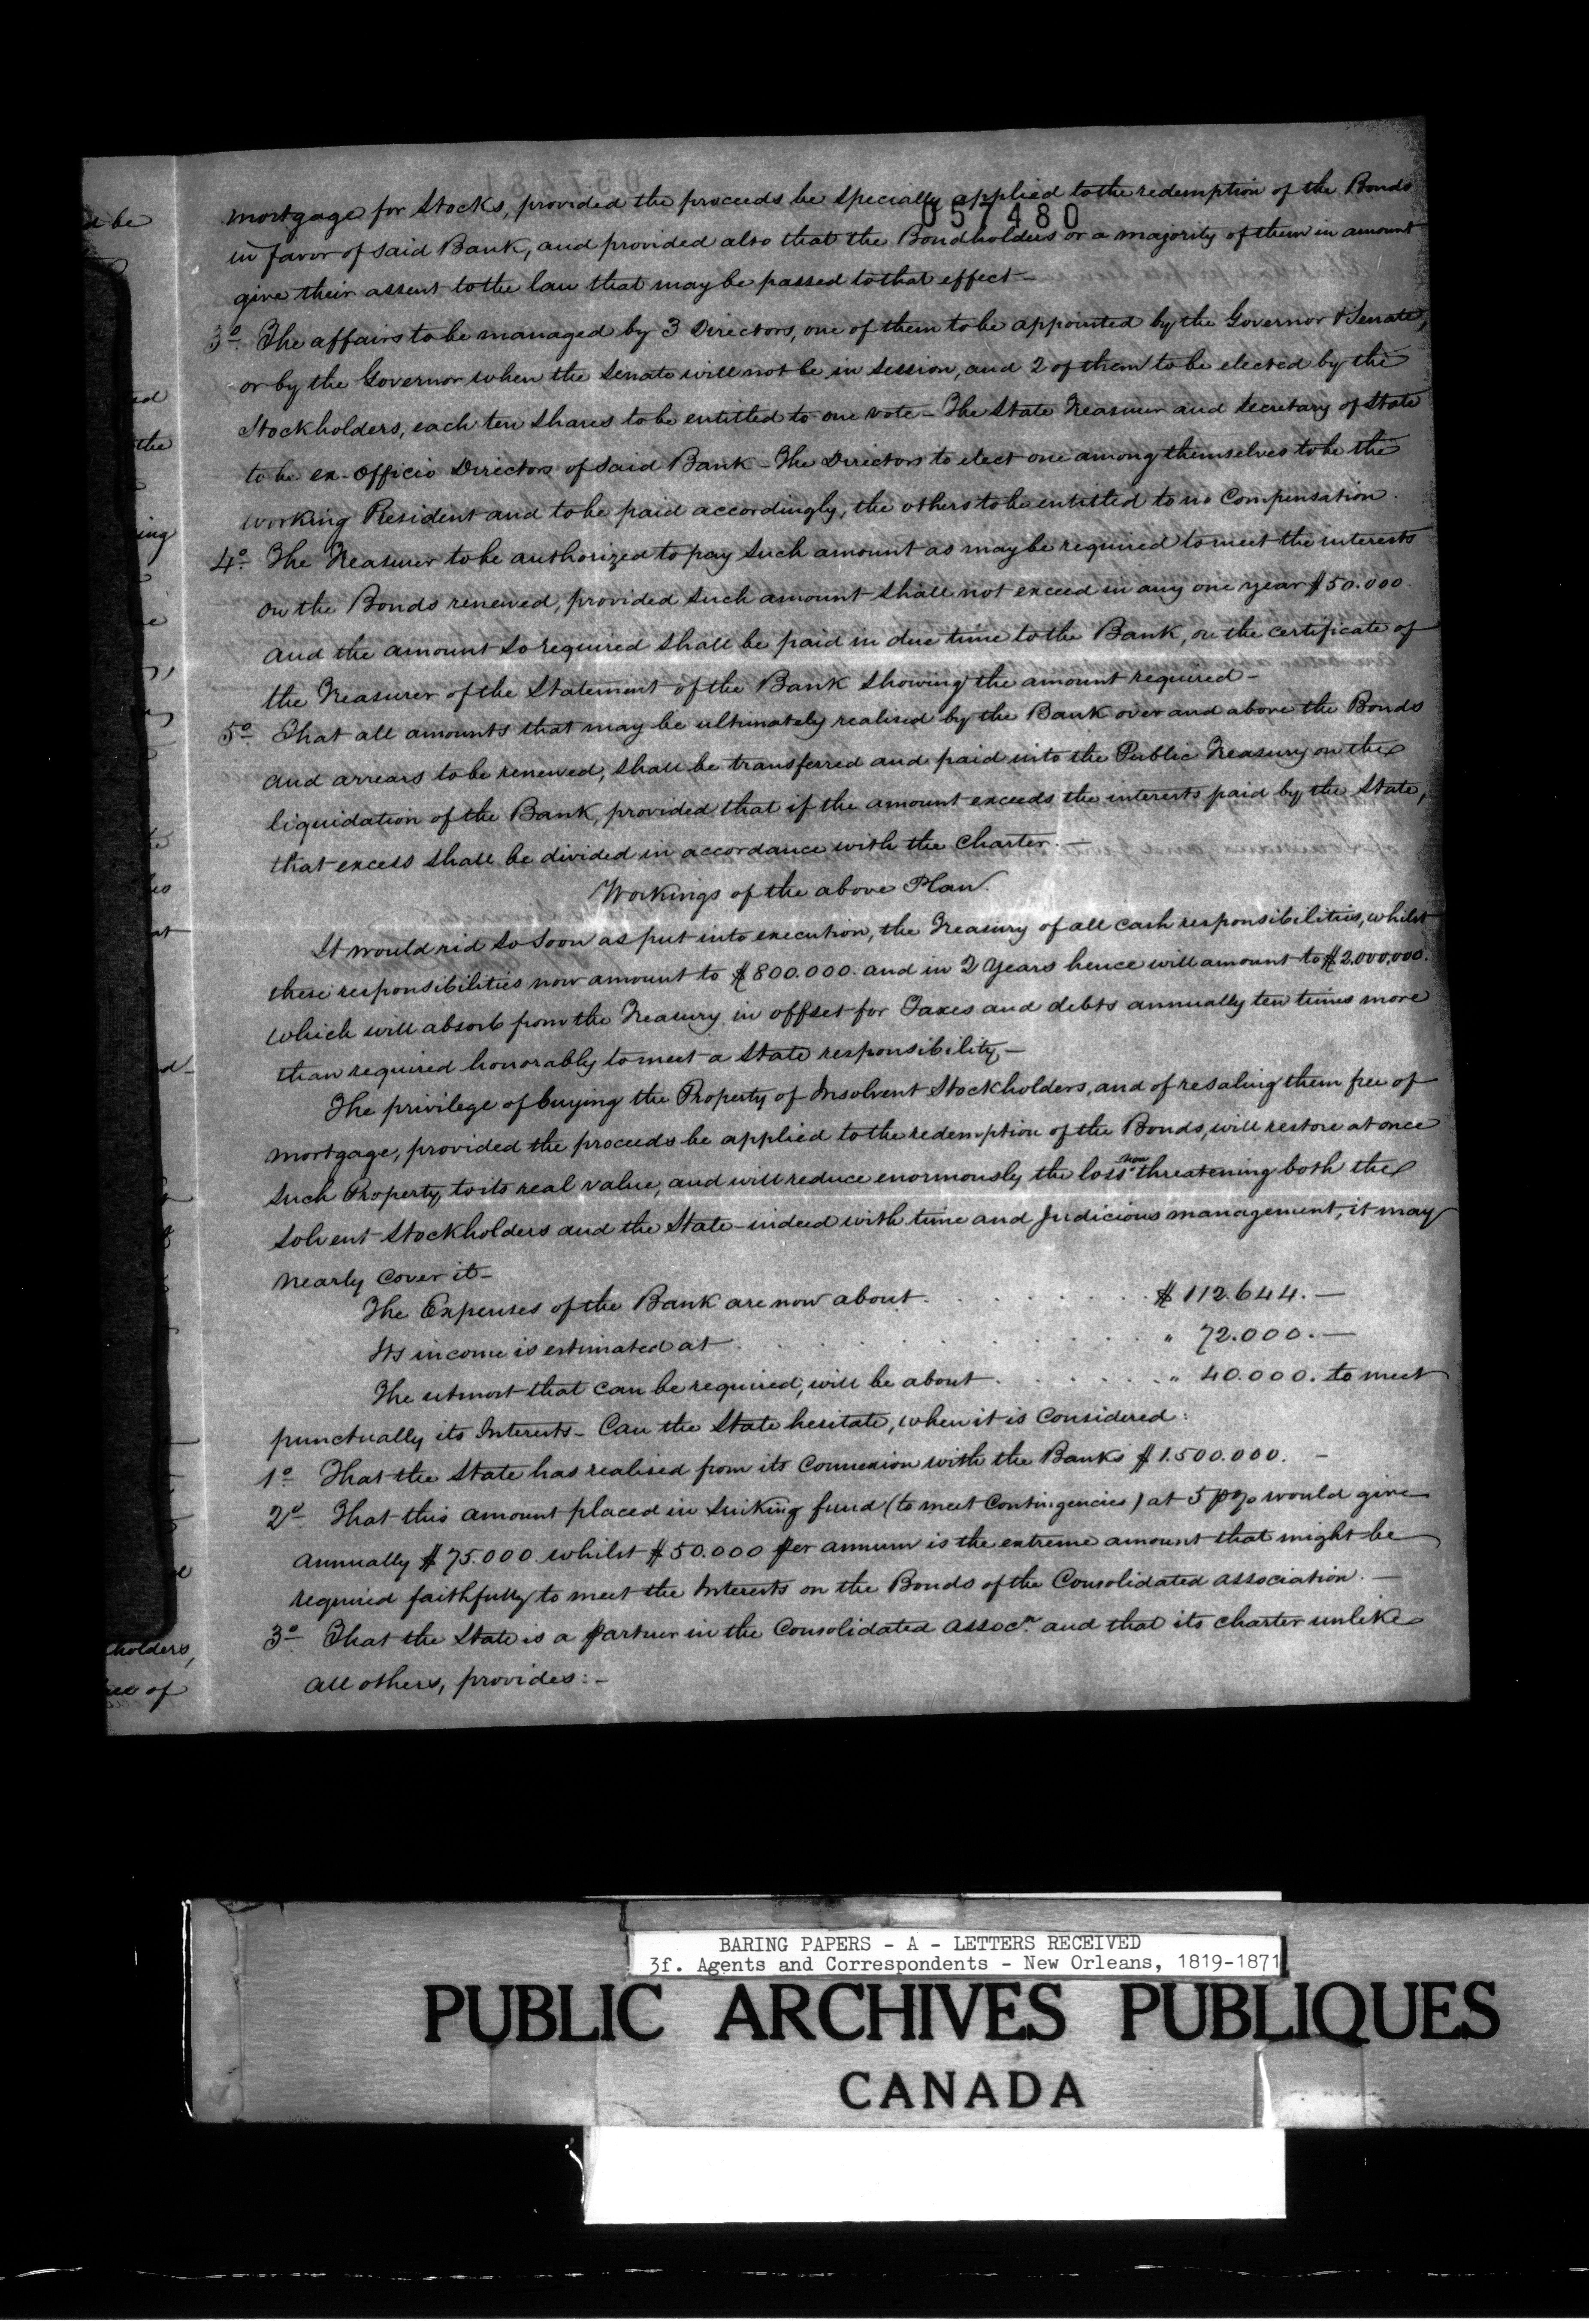 mortgage for Stocks, provided the proceeds be specially applied to the redemption of the Bonds
057480
in favor of said Bank, and provided also that the Bondholders or a majority of them in amount
give their assent to the law that may be passed to that effect—
3º The affairs to be managed by 3 Directors, one of them to be appointed by the Governor & Senate,
or by the Governor when the Senate will not be in Session, and 2 of them to be elected by the
Stockholders, each ten shares to be entitled to one vote – The State Treasurer and Secretary of State
to be ex-officio Directors of said Bank – The Directors to elect one among themselves to be the
working President and to be paid accordingly, the others to be entitled to no Compensation.
4º The Treasurer to be authorized to pay such amount as may be required to meet the interests
on the Bonds renewed, provided such amount shall not exceed in any one year $50.000
and the amount so required shall be paid in due time to the Bank, on the certificate of
the Treasurer of the Statement of the Bank showing the amount required –
5º That all amounts that may be ultimately realised by the Bank over and above the Bonds
and arrears to be renewed, shall be transferred and paid into the Public Treasury on the
liquidation of the Bank, provided that if the amount exceeds the interests paid by the State,
that excess shall be divided in accordance with the Charter. —
Workings of the above Plan.
It would rid so soon as put into execution, the Treasury of all cash responsibilities, whilst
these responsibilities now amount to $800.000. and in 2 Years hence will amount to $2.000.000.
which will absorb from the Treasury in offset for Taxes and debts annually ten times more
than required honorably to meet a State responsibility —
The privilege of buying the Property of Insolvent Stockholders, and of resaling them free of
mortgage, provided the proceeds be applied to the redemption of the Bonds, will restore at once
such Property, to its real value, and will reduce enormously the loss now threatening both the
solvent Stockholders and the State – indeed with time and Judicious management, it may
nearly cover it –
The Expenses of the Bank are now about . . . . . . . . $ 112.644. —
Its income is estimated at . . . . . . . . . . " 72.000. —
The utmost that can be required, will be about . . . . . . " 40.000. to meet
punctually its Interests – Can the State hesitate, when it is Considered:
1º That the State has realised from its Connexion with the Banks $1.500.000. –
2º That this amount placed in Sinking fund (to meet Contingencies) at 5 p% would give
annually $75.000. whilst $50.000 per annum is the extreme amount that might be
required faithfully to meet the Interests on the Bonds of the Consolidated Association. —
3º That the State is a partner in the Consolidated Assocn. and that its charter unlike
all others, provides: –
d be
the
ing
holders,
of
BARING PAPERS - A - LETTERS RECEIVED
3f. Agents and Correspondents - New Orleans, 1819-1871
PUBLIC ARCHIVES PUBLIQUES
CANADA